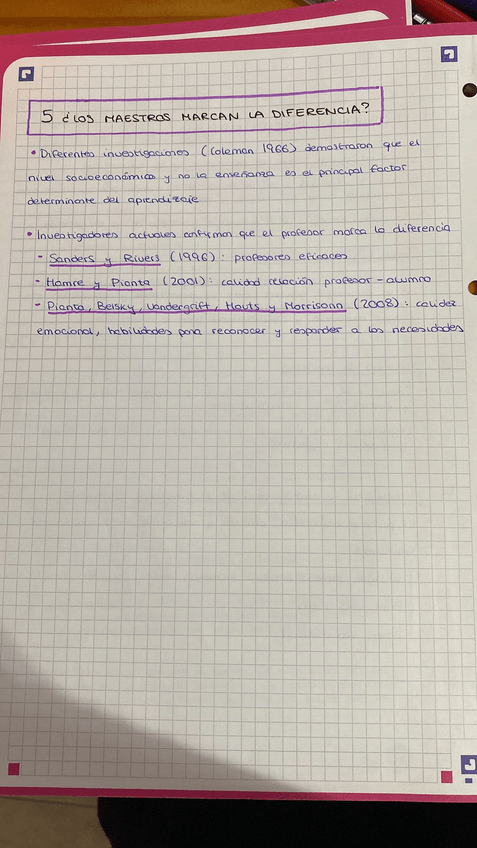 5 ¿LOS MAESTROS MARCAN LA DIFERENCIA?
• Diferentes investigaciones (Coleman 1966) demostraron que el
nivel socioeconómico y no la enseñanza es el principal factor
determinante del aprendizaje
• Investigadores actuales confirman que el profesor marca la diferencia
- Sanders y Rivers (1996): profesores eficaces
- Hamre y Pianta (2001): calidad relación profesor-alumno
- Pianta, Belsky, Vandergrift, Houts y Morrisonn (2008): calidez
emocional, habilidades para reconocer y responder a las necesidades